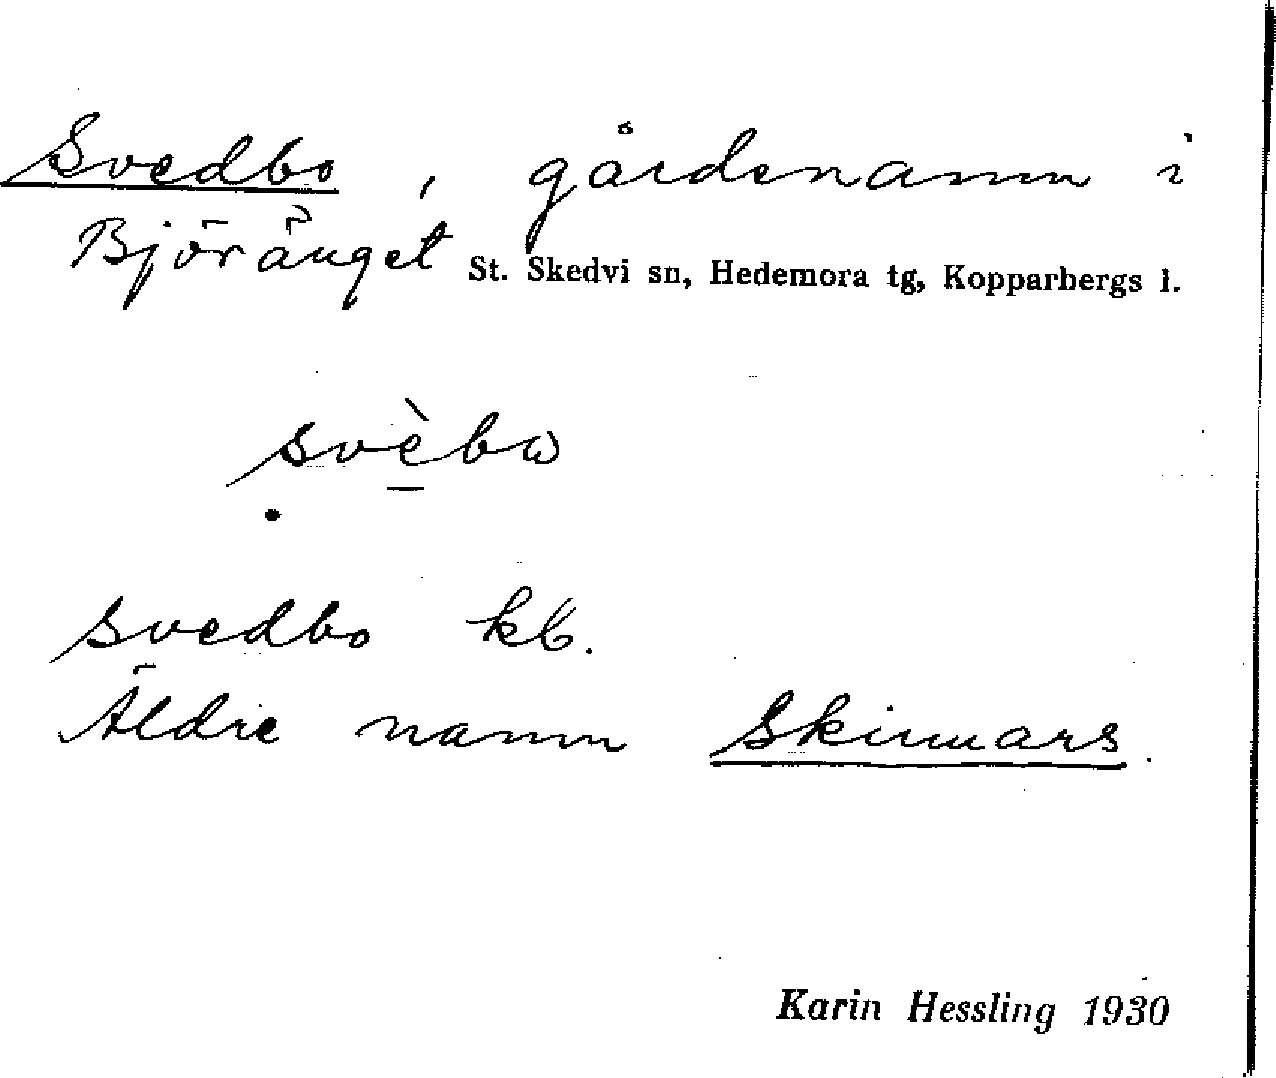 Svedbo, gårdsnamn i
Björänget St. Skedvi sn, Hedemora tg, Kopparbergs l.
svèbω
svedbo kb.
Äldre namn Skinnars.
Karin Hessling 1930